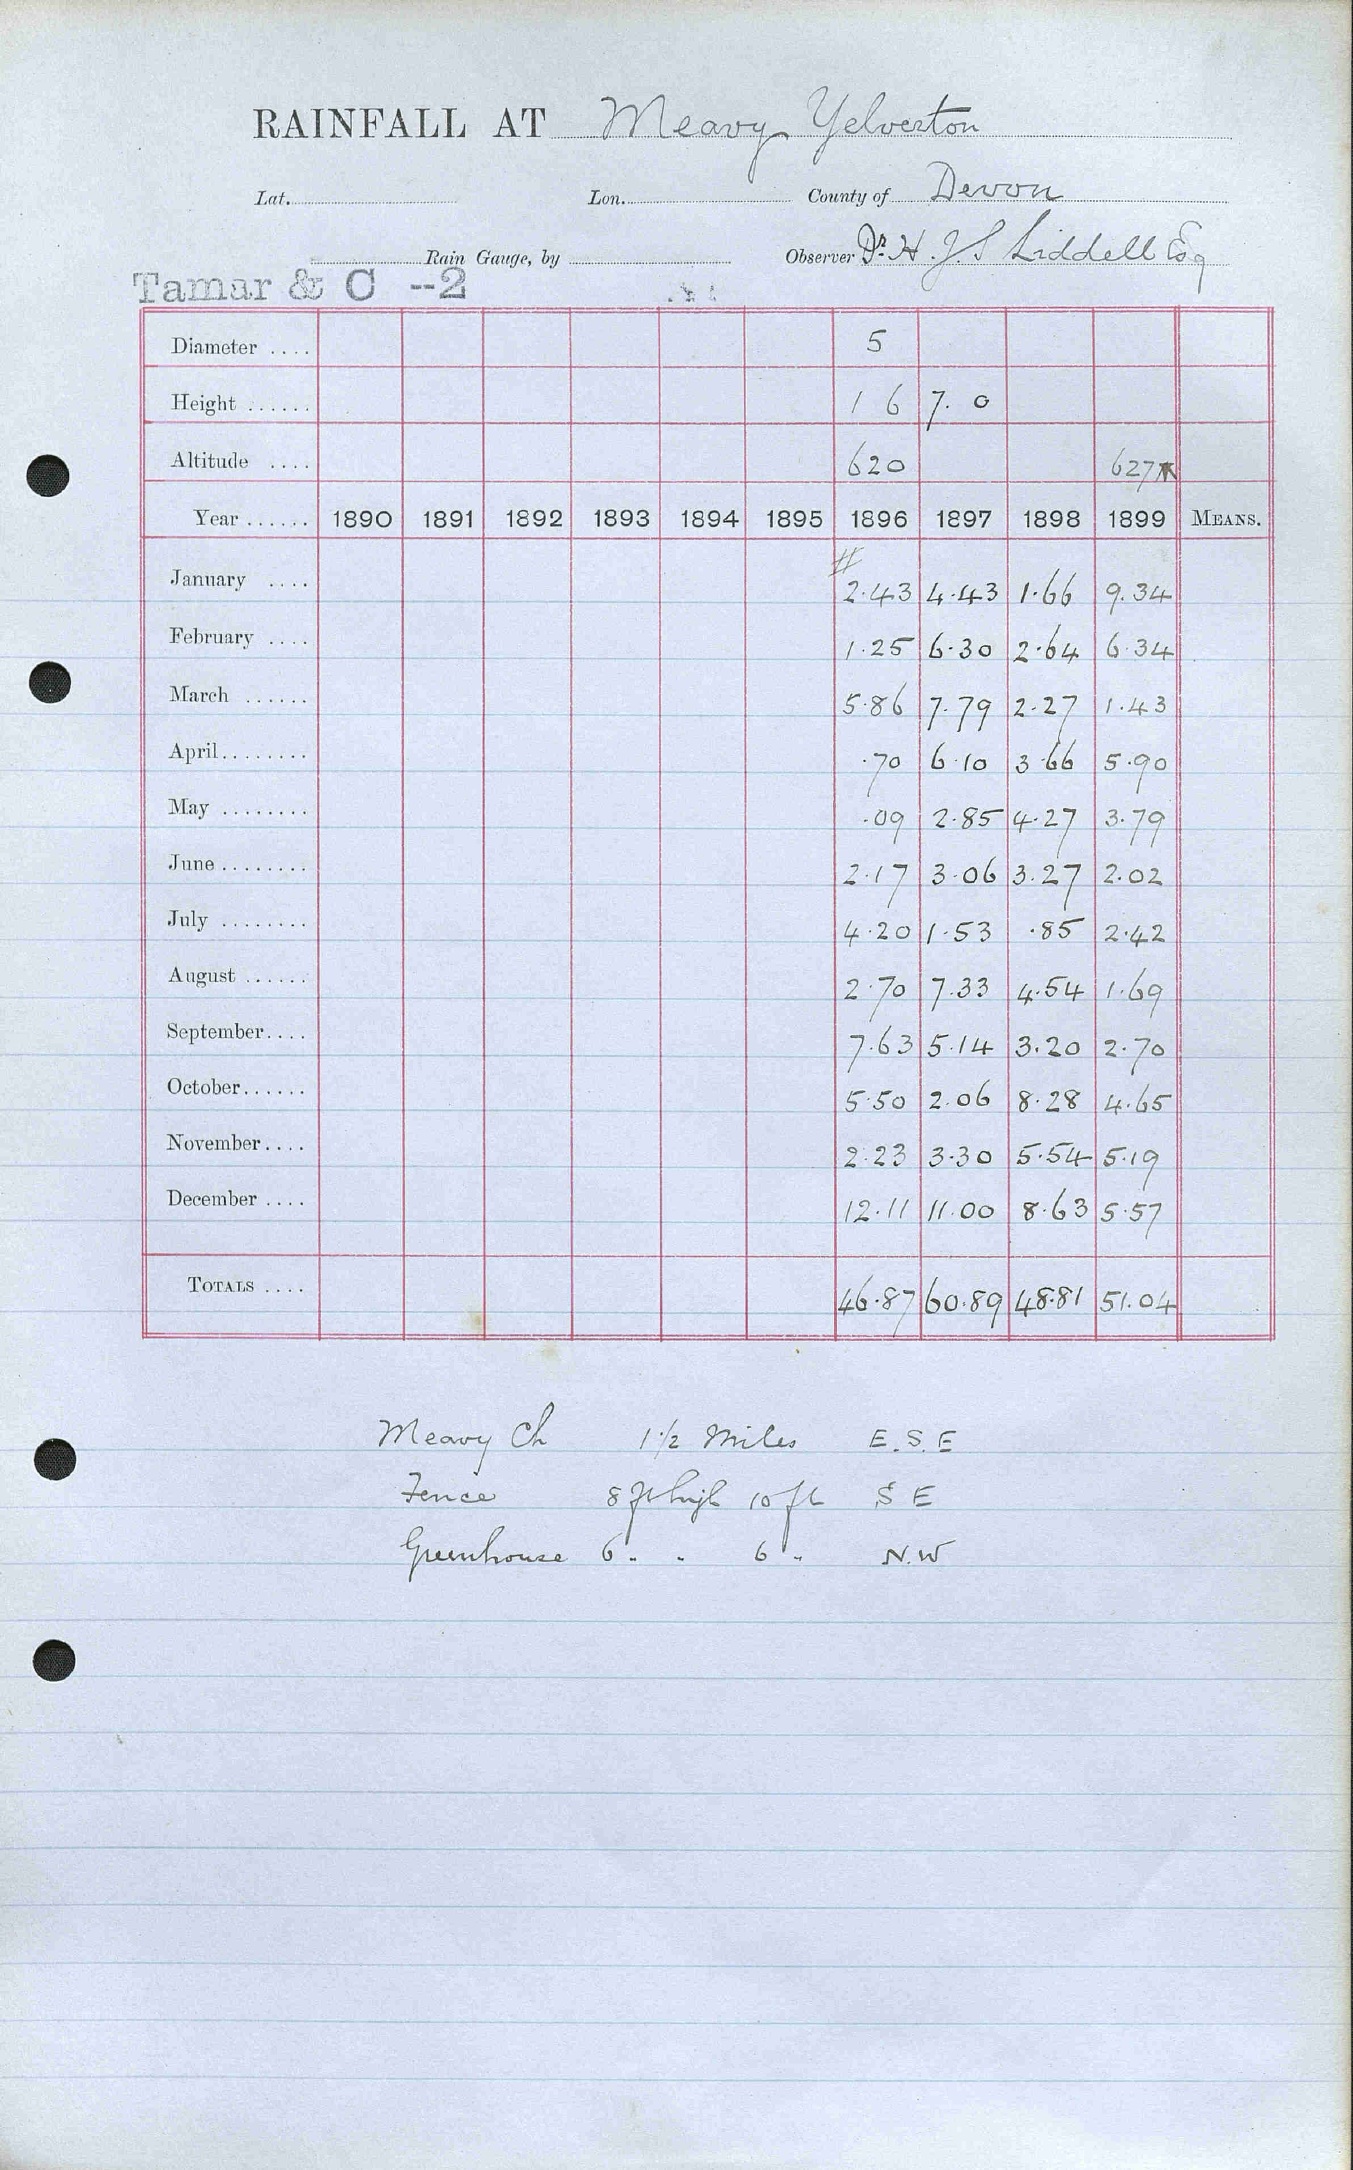 RAINFALL AT Meavy Yelverton
Lat. Lon. County of Devon
Rain Gauge, by Observer Dr. H. J. S Liddell Esq
Tamar & C --2
Diameter .... 5
Height ...... 1 6 7. 0
Altitude .... 620 627
Year ...... 1890 1891 1892 1893 1894 1895 1896 1897 1898 1899 MEANS.
#
January .... 2.43 4.43 1.66 9.34
February .... 1.25 6.30 2.64 6.34
March ...... 5.86 7.79 2.27 1.43
April........ .70 6.10 3.66 5.90
May ........ .09 2.85 4.27 3.79
June ........ 2.17 3.06 3.27 2.02
July ........ 4.20 1.53 .85 2.42
August ...... 2.70 7.33 4.54 1.69
September.... 7.63 5.14 3.20 2.70
October...... 5.50 2.06 8.28 4.65
November.... 2.23 3.30 5.54 5.19
December .... 12.11 11.00 8.63 5.57
TOTALS .... 46.87 60.89 48.81 51.04
Meavy Ch 1 1/2 Miles E.S.E
Fence 8 ft high 10 ft S E
Greenhouse 6 " " 6 " N.W